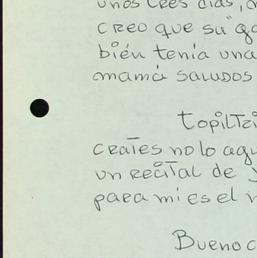 unos tres días,
creo que su
bién tenía una
mamá saludos
Topiltzi
craies no lo aqu
un recital de
para mi es el
Bueno